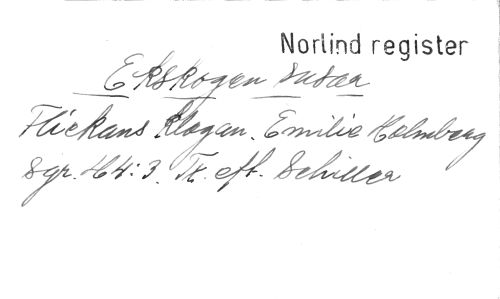 Norlind register
Ekskogen susar
Flickans klagan. Emilie Holmberg
Sgr. H4:3. Tx. eft. Schiller